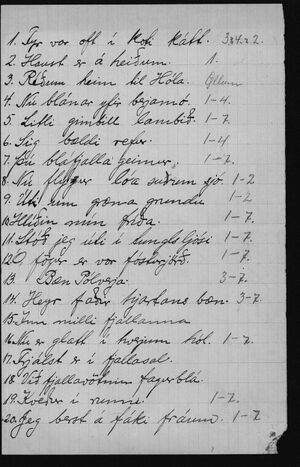 1. Fyr var oft í koti kátt. 3 og 2.
2. Haust er á heiðum. 1.
3. Ríðum heim til Hóla. Öllum
4. Nú blánar yfir berjamó. 1-4.
5. Litli gimbill lambið. 1-7
6. Sig bældi refur. 1-4
7. Þú bláfjalla geimur. 1-2.
8. Nú flýgur lóa suðrum sjó. 1-2
9. Úti um græna grundu 1-2
10. Hlíðin mín fríða. 1-7.
11. Stóð jeg úti í tunglsljósi 1-7.
12. Ó fögur er vor fósturjörð. 1-7.
13. Bæn Pólverja. 3-7.
14. Heyr faðir hjartans bæn. 3-7.
15. Inn milli fjallanna
16. Nú er glatt í hverjum hól. 1-7.
17. Frjálst er í fjallasal.
18. Við fjallavötnin fagurblá.
19. Kveður í runni. 1-7.
20. Jeg berst á fáki fráum. 1-7